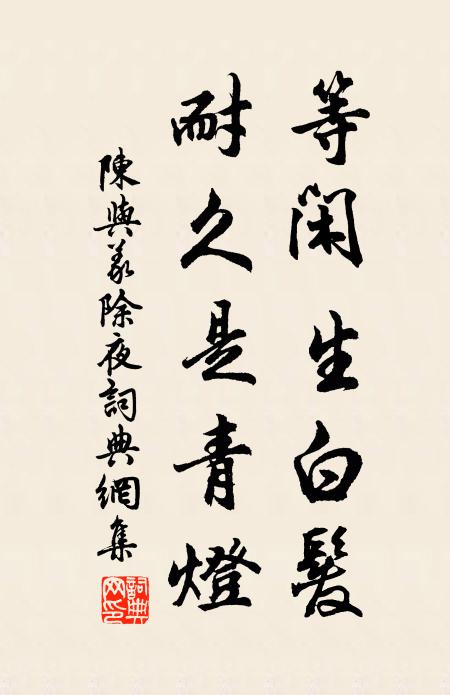 等閑生白髮
耐久是青燈
陳與義除夜詞典網集
詞典網印